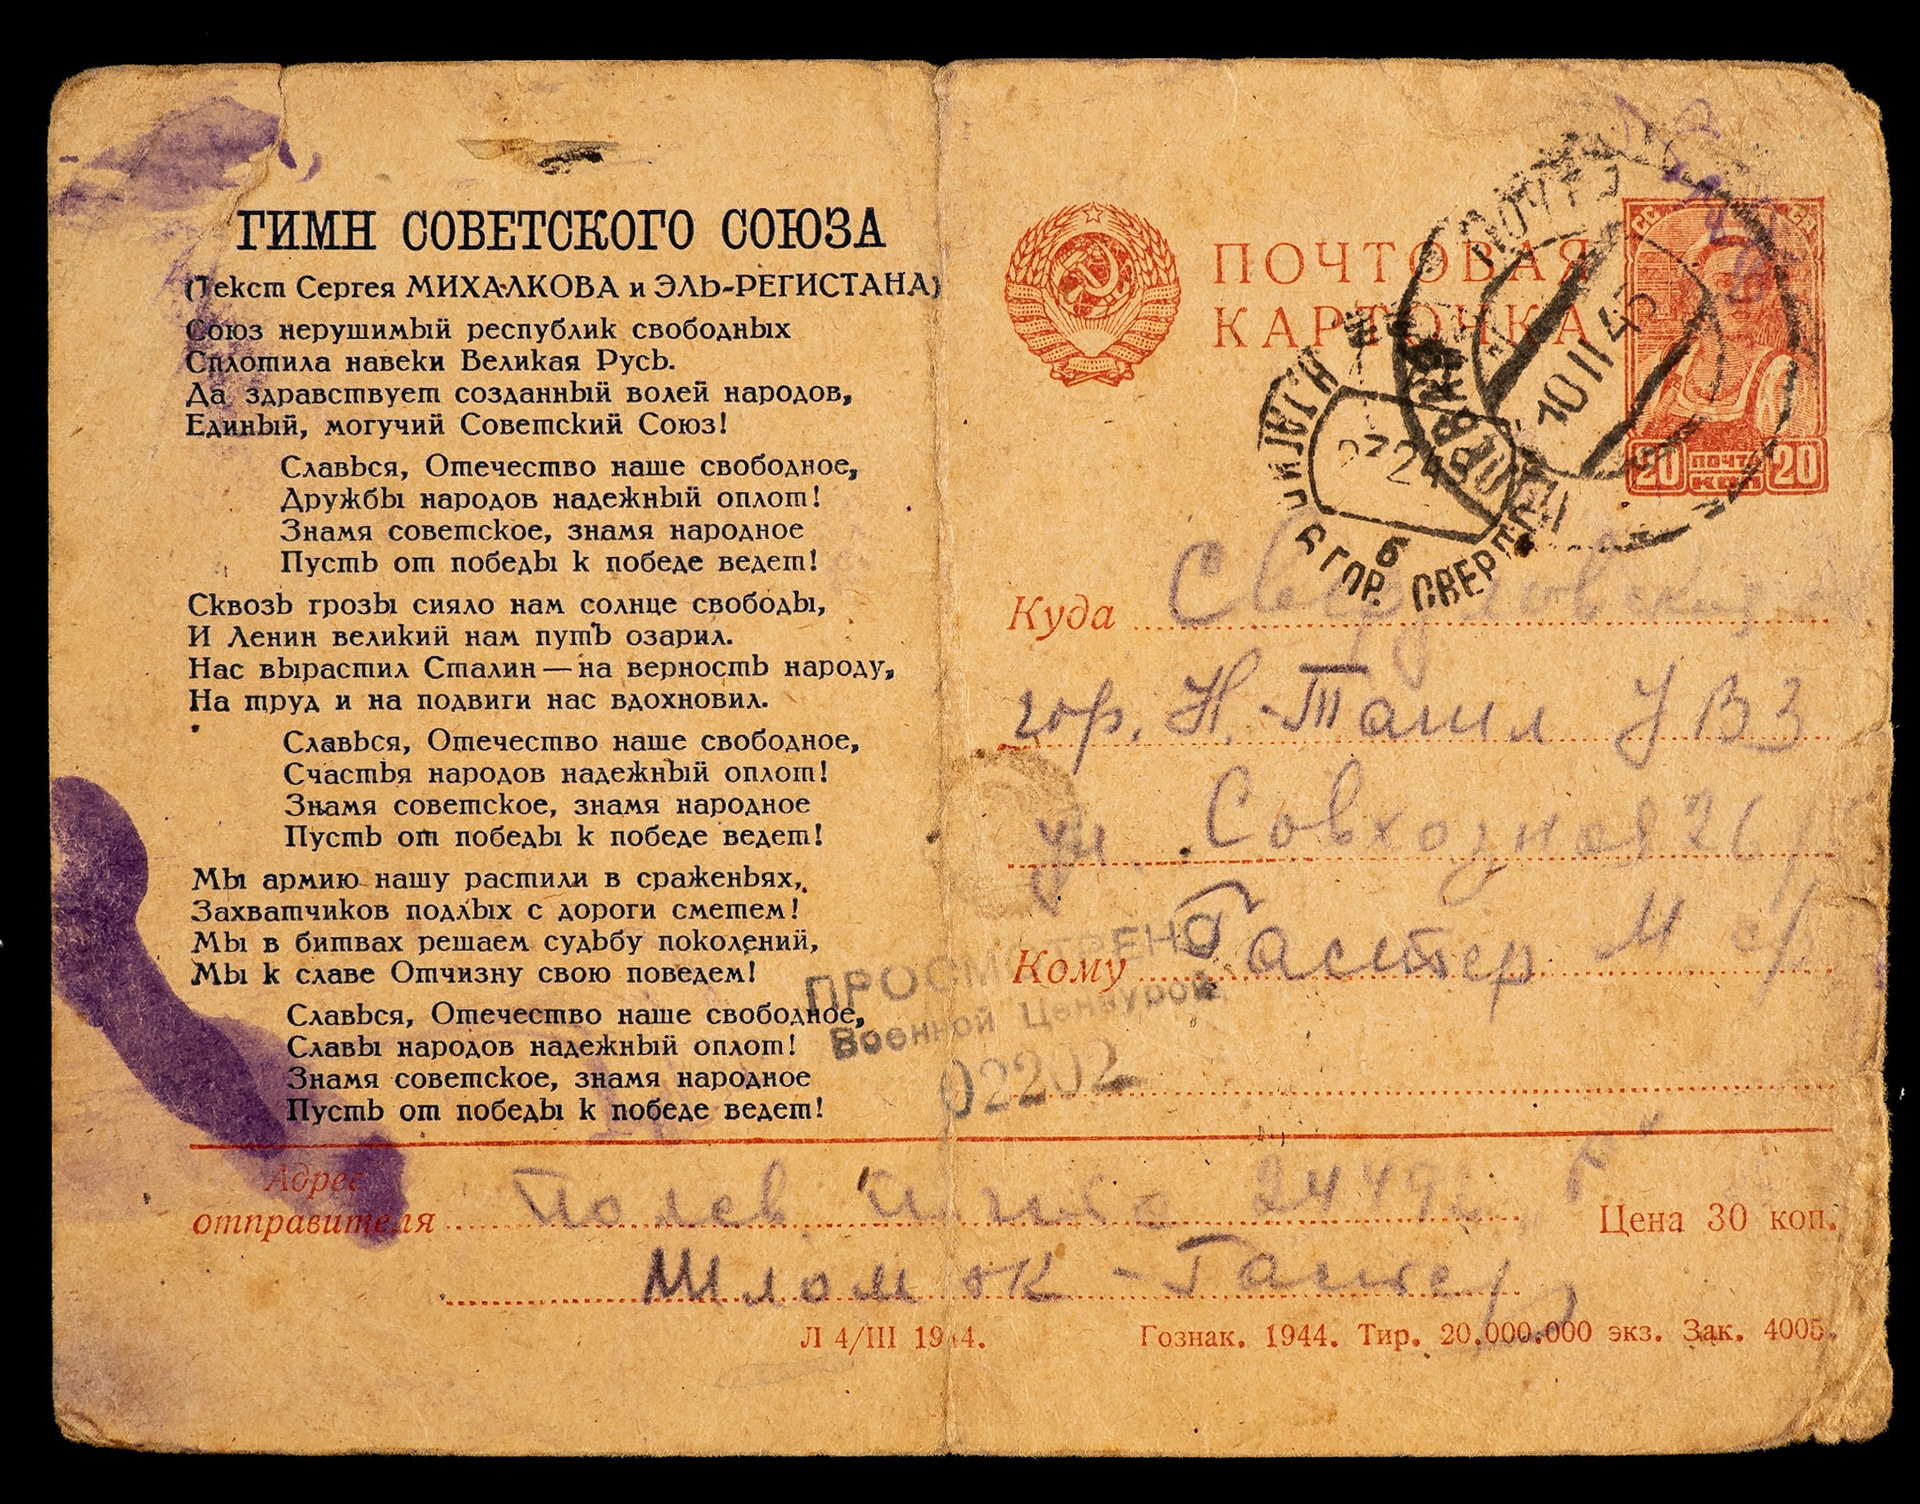 ГИМН СОВЕТСКОГО СОЮЗА
(Текст Сергея МИХАЛКОВА и ЭЛЬ-РЕГИСТАНА)
Союз нерушимый республик свободных
Сплотила навеки Великая Русь.
Да здравствует созданный волей народов,
Единый, могучий Советский Союз!
Славься, Отечество наше свободное,
Дружбы народов надежный оплот!
Знамя советское, знамя народное
Пусть от победы к победе ведет!
Сквозь грозы сияло нам солнце свободы,
И Ленин великий нам путь озарил.
Нас вырастил Сталин — на верность народу,
На труд и на подвиги нас вдохновил.
Славься, Отечество наше свободное,
Счастья народов надежный оплот!
Знамя советское, знамя народное
Пусть от победы к победе ведет!
Мы армию нашу растили в сраженьях,
Захватчиков подлых с дороги сметем!
Мы в битвах решаем судьбу поколений,
Мы к славе Отчизну свою поведем!
Славься, Отечество наше свободное,
Славы народов надежный оплот!
Знамя советское, знамя народное
Пусть от победы к победе ведет!
ПОЧТОВАЯ
КАРТОЧКА
20 ПОЧТА КОП 20
10 II 45
ГОР. СВЕРДЛ
б
Куда Свердловская
гор. Н.-Тагил УВЗ
ул. Совхозная 26
Кому Гастер М
ПРОСМОТРЕНО
Военной Цензурой
02202
Адрес
отправителя Полев почта
Шломок-Гастер
Цена 30 коп.
Л 4/III 1944.
Гознак. 1944. Тир. 20.000.000 экз. Зак. 4005.